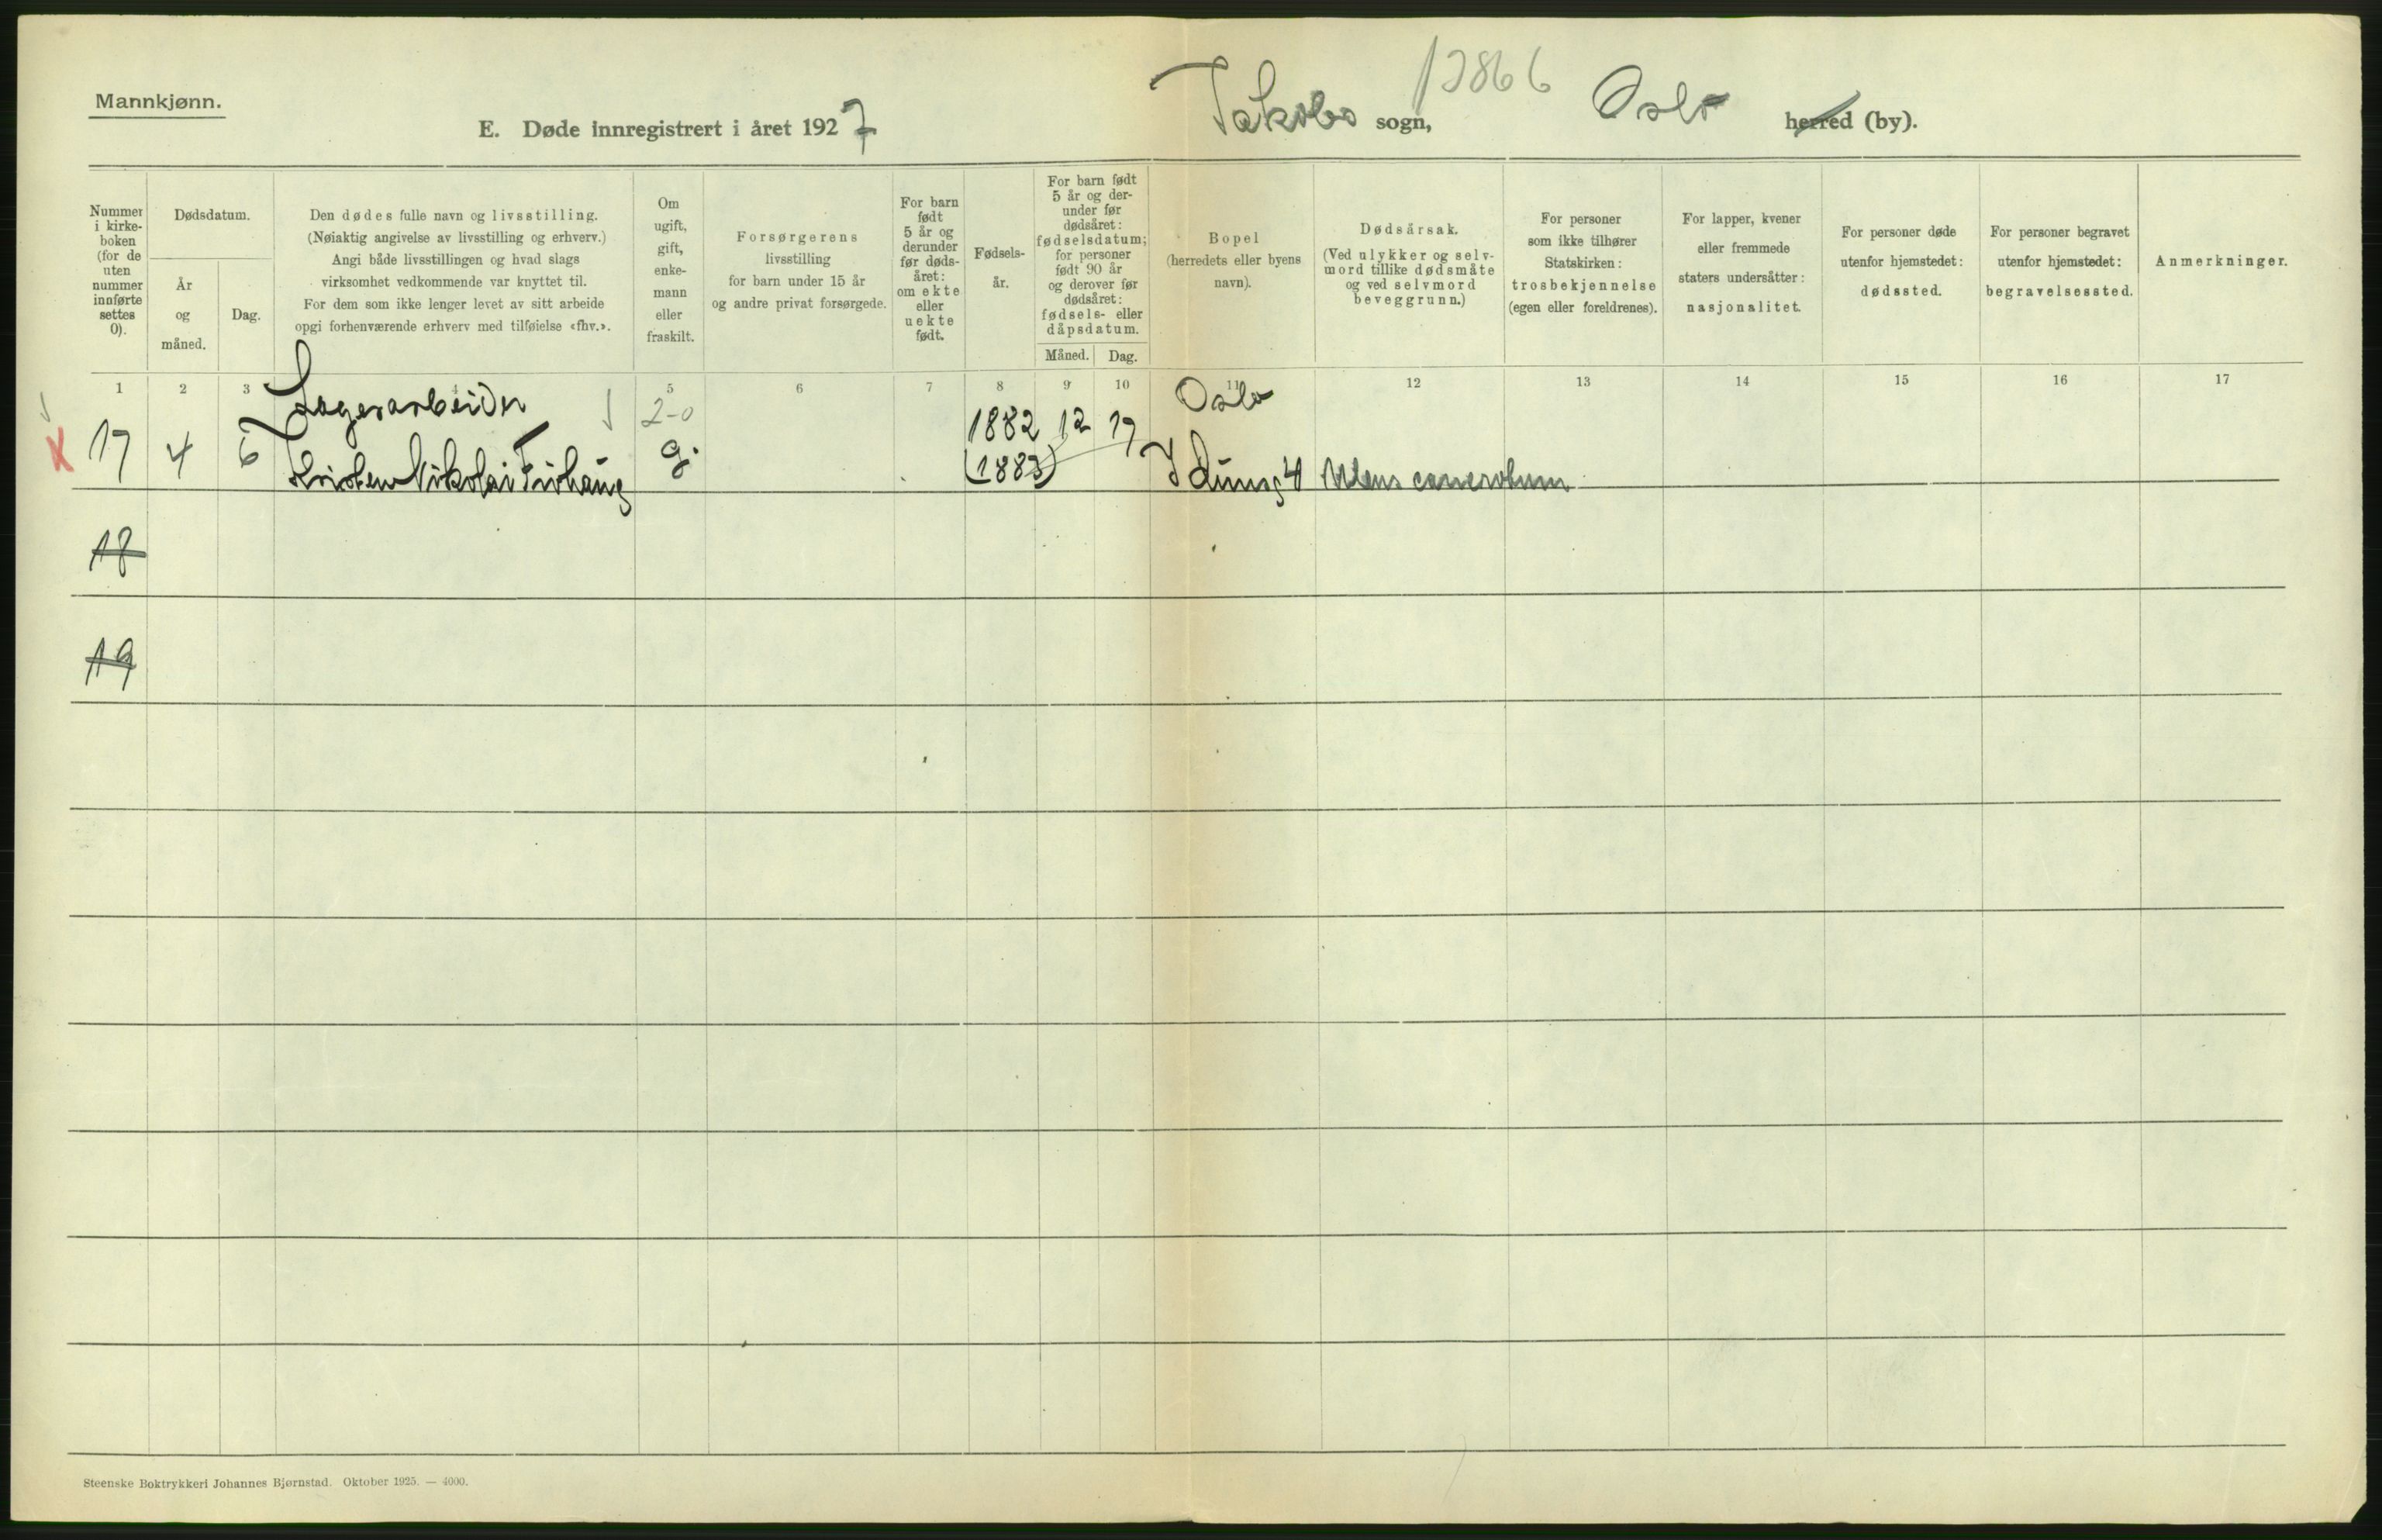 Mannkjønn.
E. Døde innregistrert i året 1927
Jakobs sogn, Oslo herred (by).
Nummer
i kirke-
boken
(for de
uten
nummer
innførte
settes
0).
Dødsdatum.
År
og
måned.
Dag.
Den dødes fulle navn og livsstilling.
(Nøiaktig angivelse av livsstilling og erhverv.)
Angi både livsstillingen og hvad slags
virksomhet vedkommende var knyttet til.
For dem som ikke lenger levet av sitt arbeide
opgi forhenværende erhverv med tilføielse «fhv.».
Om
ugift,
gift,
enke-
mann
eller
fraskilt.
Forsørgerens
livsstilling
for barn under 15 år
og andre privat forsørgede.
For barn
født
5 år og
derunder
før døds-
året:
om ekte
eller
uekte
født.
Fødsels-
år.
For barn født
5 år og der-
under før
dødsåret:
fødselsdatum;
for personer
født 90 år
og derover før
dødsåret:
fødsels- eller
dåpsdatum.
Måned. Dag.
Bopel
(herredets eller byens
navn).
Dødsårsak.
(Ved ulykker og selv-
mord tillike dødsmåte
og ved selvmord
beveggrunn.)
For personer
som ikke tilhører
Statskirken:
trosbekjennelse
(egen eller foreldrenes).
For lapper, kvener
eller fremmede
staters undersåtter:
nasjonalitet.
For personer døde
utenfor hjemstedet:
dødssted.
For personer begravet
utenfor hjemstedet:
begravelsessted.
Anmerkninger.
1 2 3 4 5 6 7 8 9 10 11 12 13 14 15 16 17
Lagerarbeider 2-0 1882 12 17 Oslo
17 4 6 Kristen Nikolai Firhaug g. (1883) Iduns g 4
18
19
Steenske Boktrykkeri Johannes Bjørnstad. Oktober 1925. — 4000.